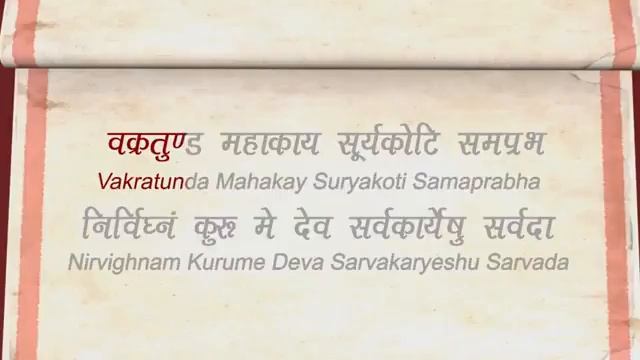 वक्रतुण्ड महाकाय सूर्यकोटि समप्रभ
Vakratunda Mahakay Suryakoti Samaprabha
निर्विघ्नं कुरू मे देव सर्वकार्येषु सर्वदा
Nirvighnam Kurume Deva Sarvakaryeshu Sarvada